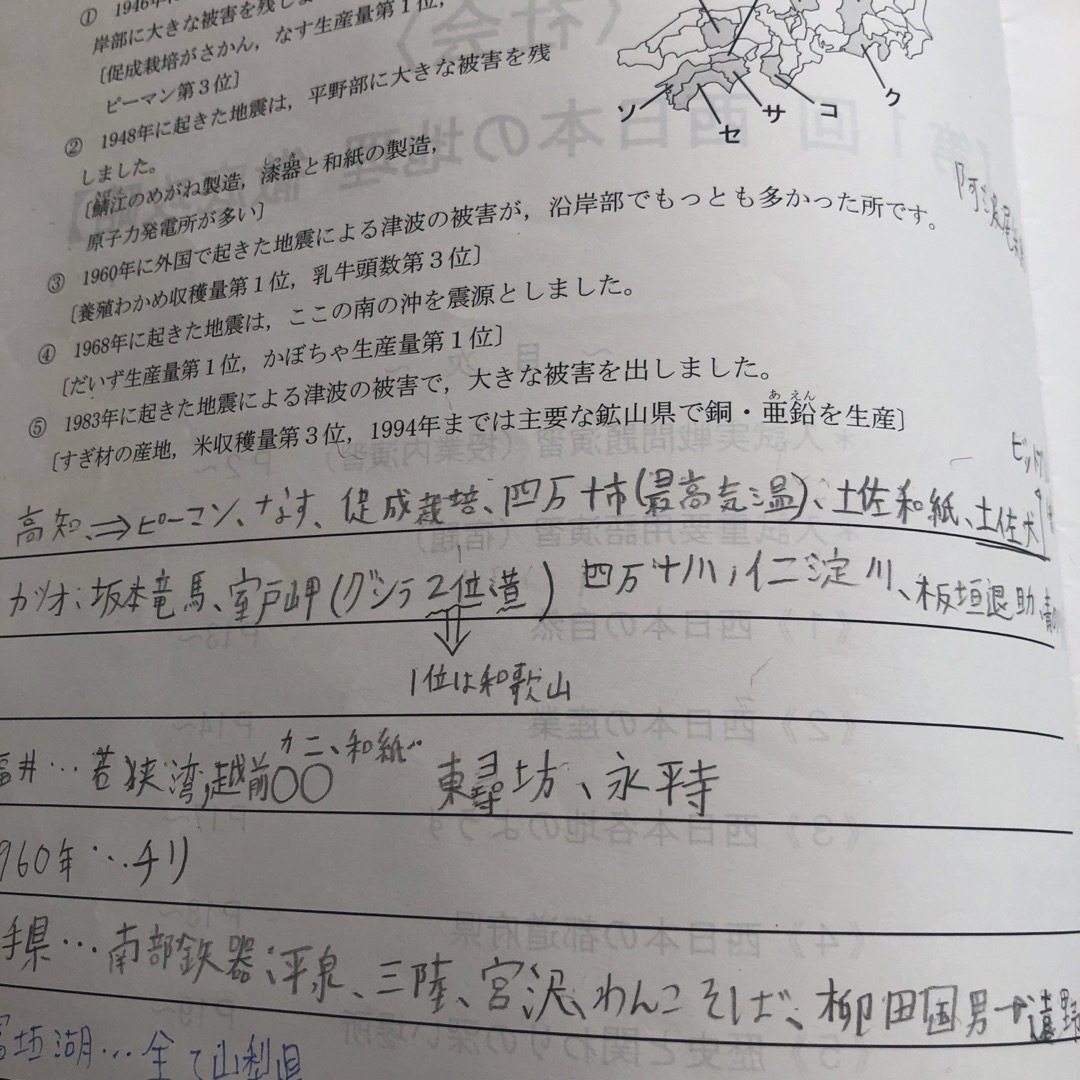 ① 1946年に
岸部に大きな被害を残しま
〔促成栽培がさかん，なす生産量第1位，
ピーマン第3位〕
② 1948年に起きた地震は，平野部に大きな被害を残
しました。
〔鯖江のめがね製造，漆器と和紙の製造，
原子力発電所が多い〕
③ 1960年に外国で起きた地震による津波の被害が，沿岸部でもっとも多かった所です。
〔養殖わかめ収穫量第1位，乳牛頭数第3位〕
④ 1968年に起きた地震は，ここの南の沖を震源としました。
〔だいず生産量第1位，かぼちゃ生産量第1位〕
⑤ 1983年に起きた地震による津波の被害で，大きな被害を出しました。
〔すぎ材の産地，米収穫量第3位，1994年までは主要な鉱山県で銅・亜鉛を生産〕
あ えん
ソ
セ
サ
コ
ク
高知⇒ピーマン、なす、促成栽培、四万十市(最高気温)、土佐和紙、土佐犬
カツオ、坂本竜馬、室戸岬(クジラ2位漁) 四万十川，仁淀川、板垣退助、
⇓
1位は和歌山
カニ、和紙
井…若狭湾，越前〇〇 東尋坊、永平寺
960年…チリ
手県…南部鉄器、平泉、三陸、宮沢、わんこそば、柳田国男→遠野
湖…全て山梨県